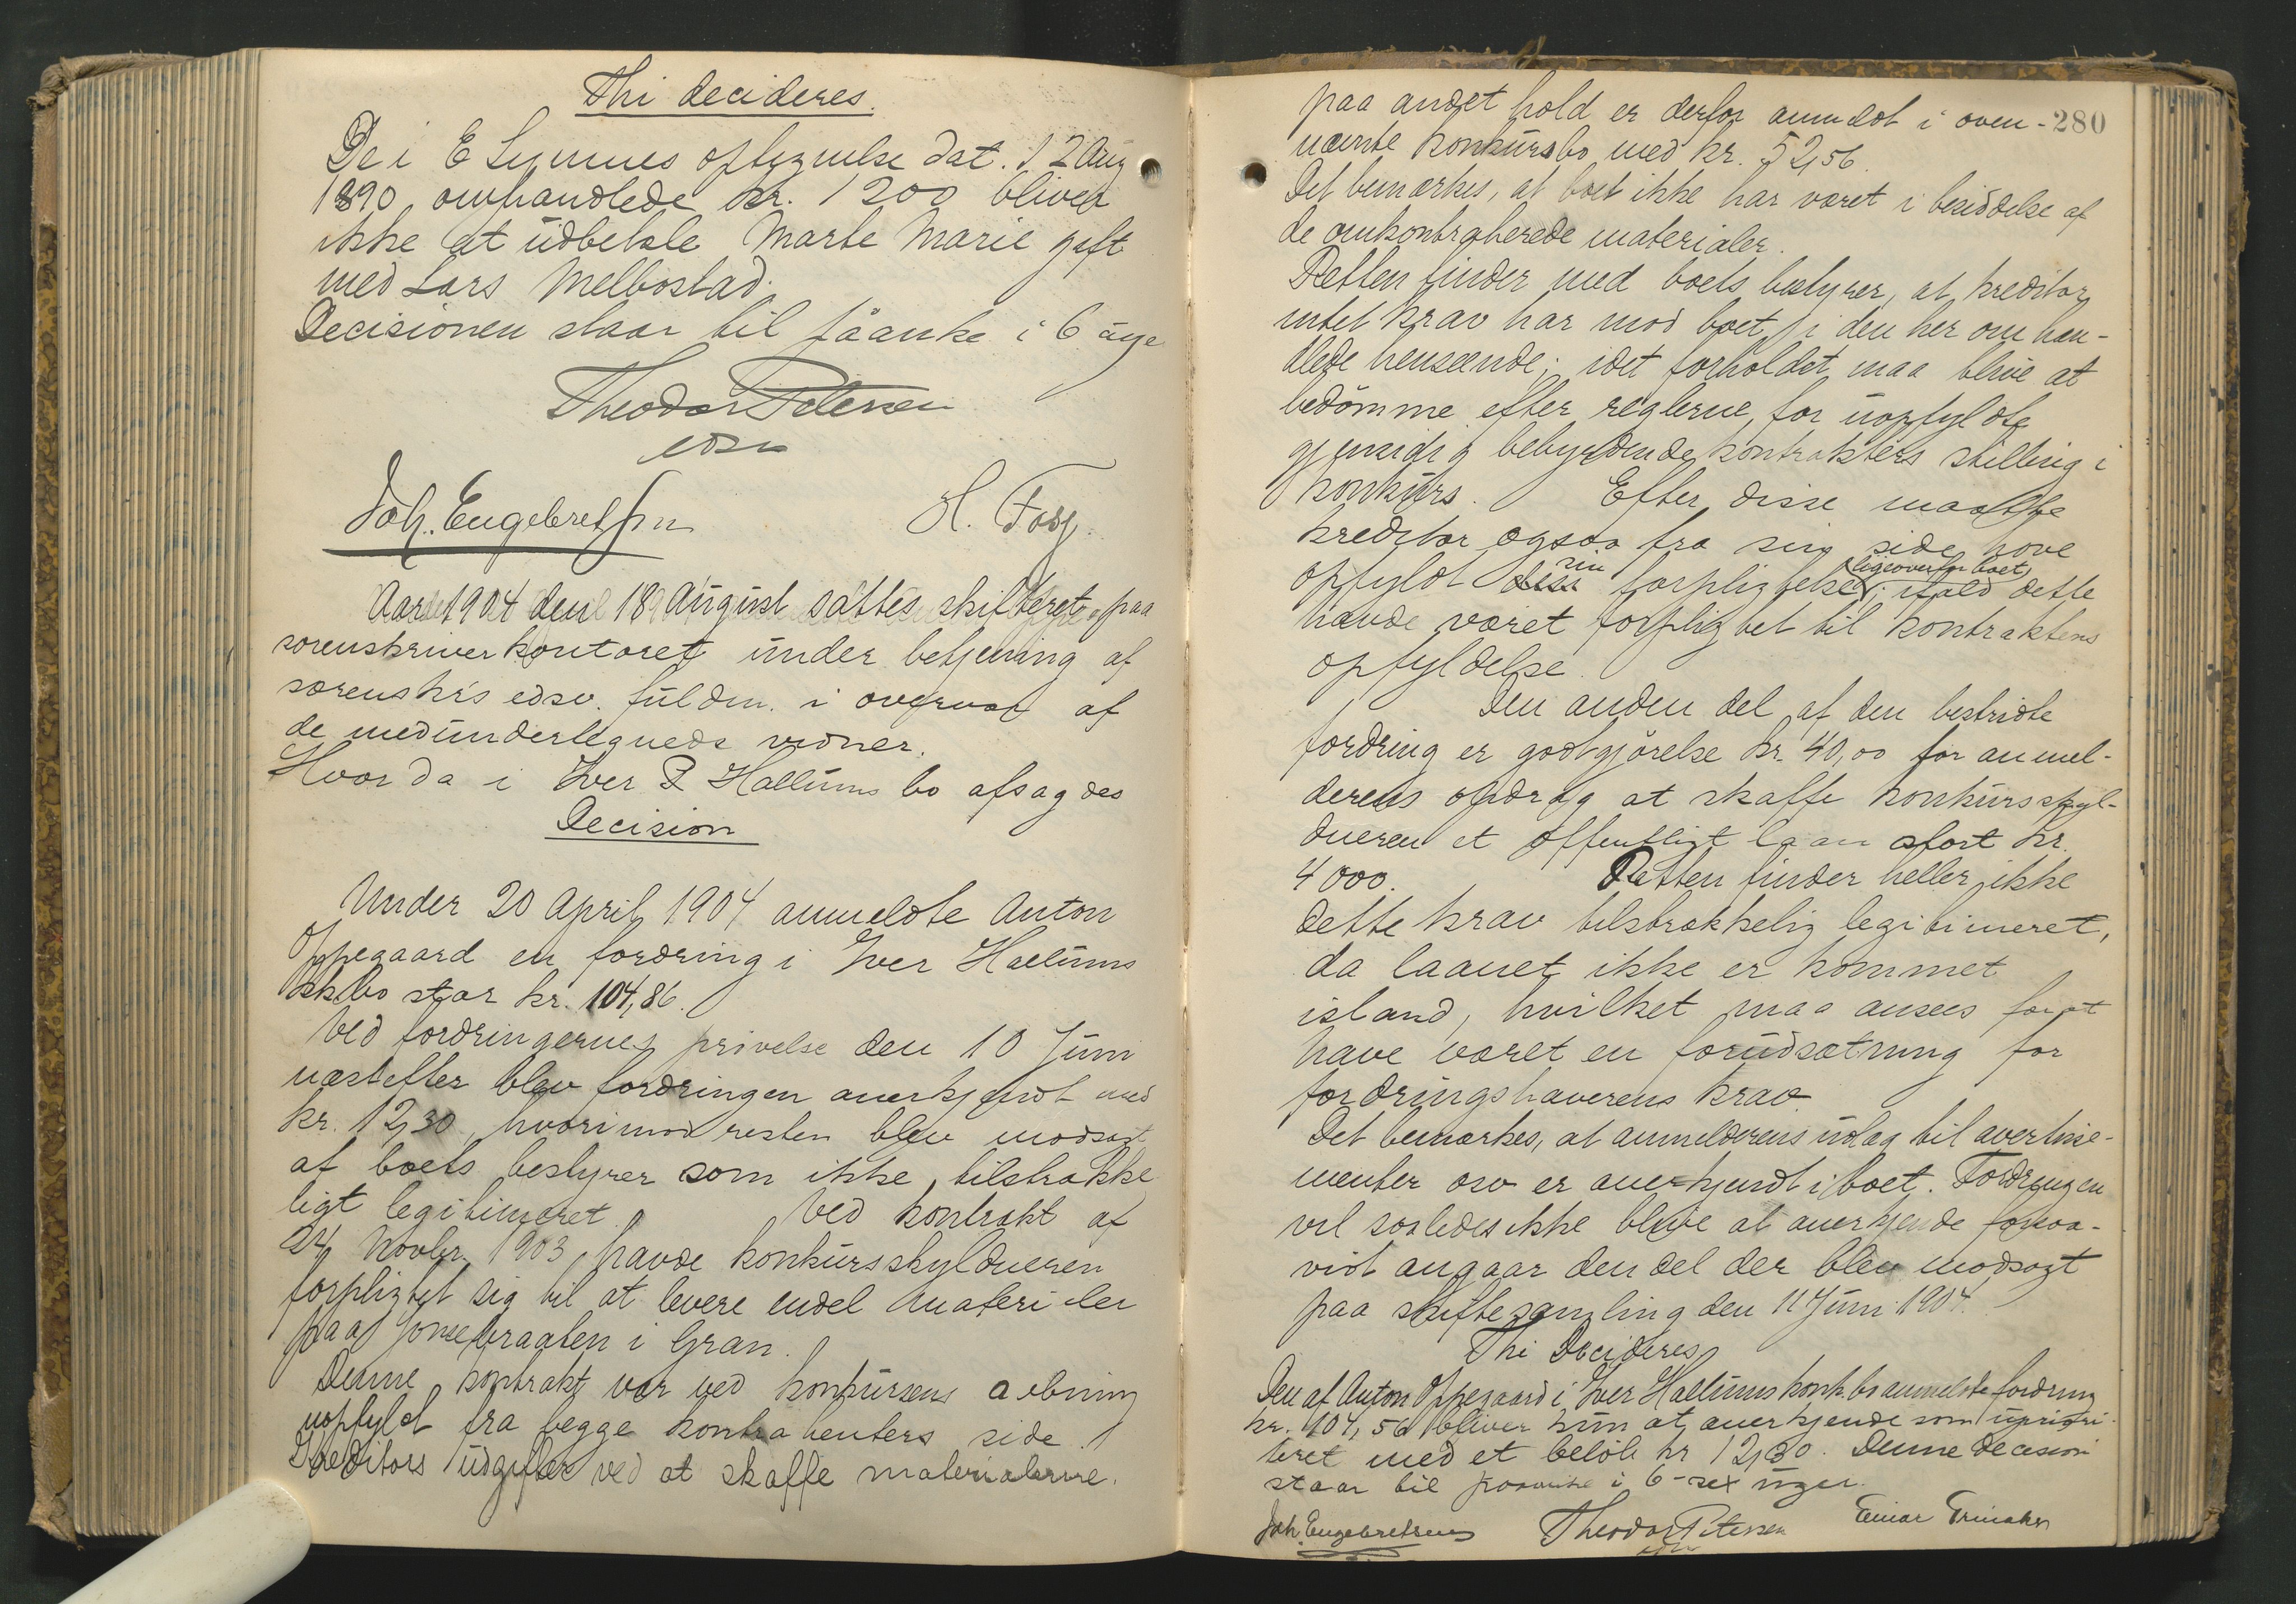 Thi decideres.
De i E Lynnes oftegnelse dat. 12 Aug
1890 omhandlede kr. 1200 bliver
ikke at udbetale Marte Marie gift
med Lars Melbostad.
Decisionen staar til paaanke i 6 uger
Theodor Petersen
edsv
Joh. Engebretsen H. Foss
Aaret 1904 den 18 August sattes skifteret paa
sorenskriverkontoret under betjening af
sorenskr's edsv. fuldm. i overvær af
de medundertegnede vidner.
Hvorda i Iver P Hallums bo afsagdes
Decision
Under 20 April 1904 anmeldte Anton
Oppegaard en fordring i Iver Hallums
kkbo stor kr. 104,86.
Ved fordringernes prøvelse den 10 Juni
næstefter blev fordringen anerkjendt med
kr. 12,30, hvorimod resten blev modsagt
af boets bestyrer som ikke tilstrække
ligt legitimeret. Ved kontrakt af
24 Novbr. 1903 havde konkursskyldneren
forpligtet sig til at levere endel materialer
paa Jonsebraaten i Gran.
Denne kontrakt var ved konkursens aabning
uopfyldt fra begge kontrahenters side.
Kreditors udgifter ved at skaffe materialerne
280
paa andet hold er derfor anmeldt i oven-
nævnte konkursbo med kr. 52,56.
Det bemærkes, at boet ikke har været i besiddelse af
de omkontraherede materialer.
Retten finder med boets bestyrer, at kreditor
intet krav har mod boet i den her omhan-
dlede henseende; idet forholdet maa blive at
bedømme efter reglerne for uopfyldte
gjensidig bebyrdende kontrakters stilling i
konkurs. Efter disse maatte
kreditor ogsaa fra sin side have
opfyldt sin forpligtelse ligeoverfor boet, ifald dette
havde været forpligtet til kontraktens
opfyldelse.
Den anden del af den bestridte
fordring er godtgjørelse kr. 40,00 for anmel-
derens opdrag at skaffe konkursskyl-
dneren et offentligt laan stort kr.
4000. Retten finder heller ikke
dette krav tilstrækkelig legitimeret,
da laanet ikke er kommet
istand, hvilket maa ansees for at
have været en forudsætning for
fordringshaverens krav.
Det bemærkes, at anmelderens udlæg til avertisse-
menter osv er anerkjendt i boet. Fordringen
vil saaledes ikke blive at anerkjende forsaa-
vidt angaar den del der blev modsagt
paa skiftesamling den 11 Juni 1904.
Thi Decideres
Den af Anton Oppegaard i Iver Hallums konk.bo anmeldte fordring
kr. 104,56 bliver kun at anerkjende som upriori-
teret med et beløb kr 12,30. Denne decision
staar til paaanke i 6-sex uger.
Joh. Engebretsen Theodor Petersen Einar